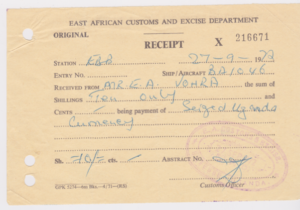 EAST AFRICAN CUSTOMS AND EXCISE DEPARTMENT
ORIGINAL
RECEIPT X 216671
STATION EBB 27-9-1973
ENTRY NO. SHIP/AIRCRAFT BA1046
RECEIVED FROM MR. E.A. VOHRA the sum of
SHILLINGS Ten only
CENTS being payment of Seized Uganda
Currency
Sh. 10/= cts.
ABSTRACT NO.
Customs Officer